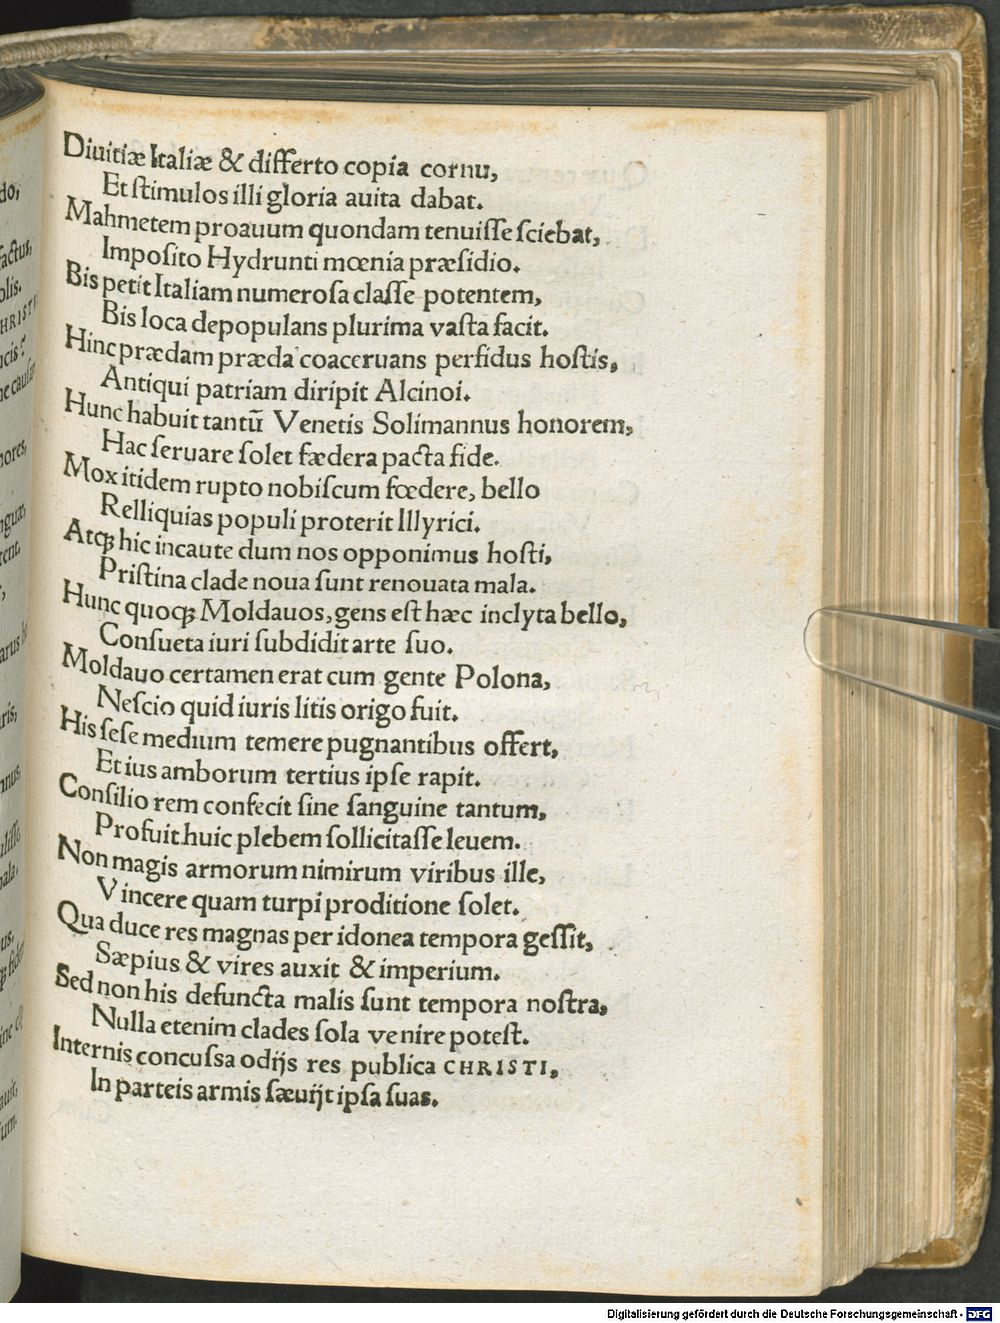 Diuitiæ Italiæ & differto copia cornu,
Et ſtimulos illi gloria auita dabat.
Mahmetem proauum quondam tenuiſſe ſciebat,
Impoſito Hydrunti mœnia præſidio.
Bis petit Italiam numeroſa claſſe potentem,
Bis loca depopulans plurima vaſta facit.
Hinc prædam præda coaceruans perfidus hoſtis,
Antiqui patriam diripit Alcinoi.
Hunc habuit tantū Venetis Solimannus honorem,
Hac ſeruare ſolet fædera pacta fide.
Mox itidem rupto nobiſcum fœdere, bello
Relliquias populi proterit Illyrici.
Atqꝫ hic incaute dum nos opponimus hoſti,
Priſtina clade noua ſunt renouata mala.
Hunc quoqꝫ Moldauos, gens eſt hæc inclyta bello,
Conſueta iuri ſubdidit arte ſuo.
Moldauo certamen erat cum gente Polona,
Neſcio quid iuris litis origo fuit.
His ſeſe medium temere pugnantibus offert,
Et ius amborum tertius ipſe rapit.
Conſilio rem confecit ſine ſanguine tantum,
Profuit huic plebem ſollicitaſſe leuem.
Non magis armorum nimirum viribus ille,
Vincere quam turpi proditione ſolet.
Qua duce res magnas per idonea tempora geſſit,
Sæpius & vires auxit & imperium.
Sed non his defuncta malis ſunt tempora noſtra,
Nulla etenim clades ſola venire poteſt.
Internis concuſſa odijs res publica CHRISTI,
In parteis armis ſæuijt ipſa ſuas.
Digitalisierung gefördert durch die Deutsche Forschungsgemeinschaft - DFG